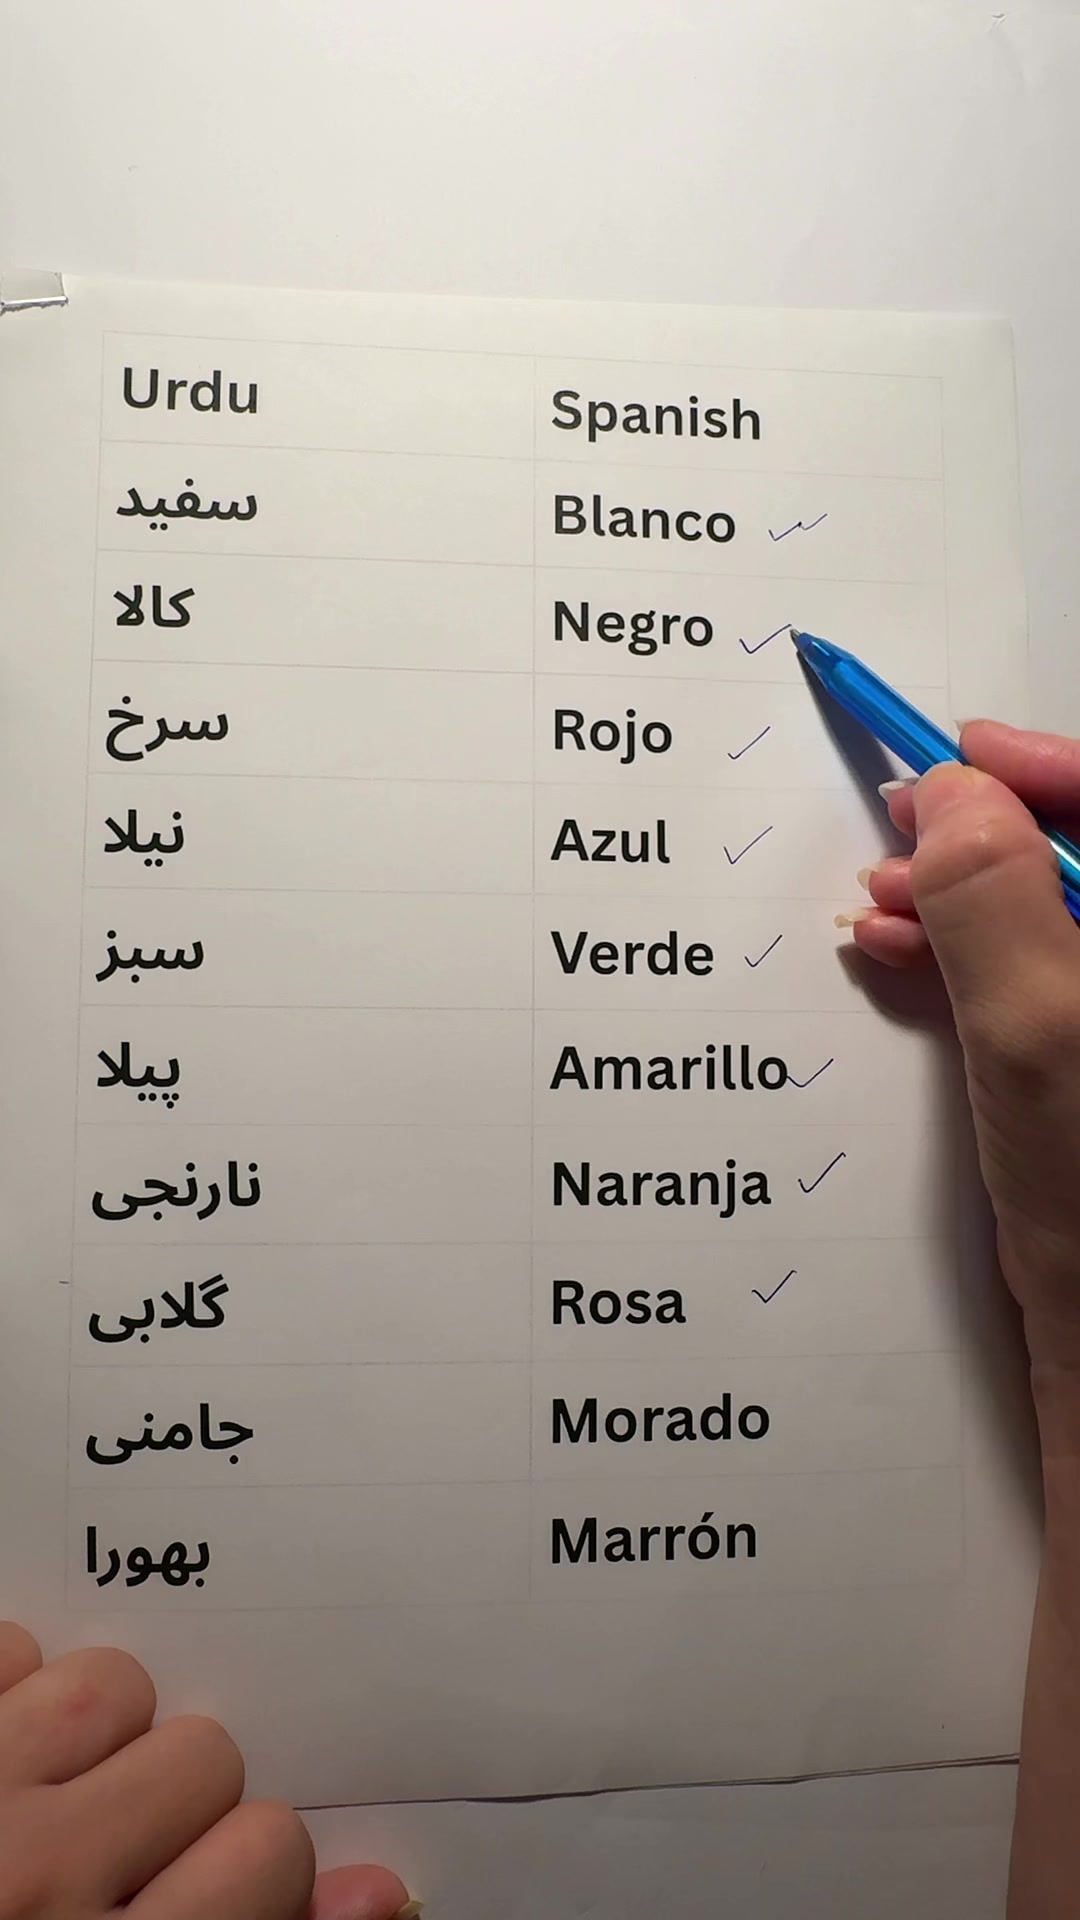 Urdu Spanish
سفید Blanco
کالا Negro
سرخ Rojo
نیلا Azul
سبز Verde
پیلا Amarillo
نارنجی Naranja
گلابی Rosa
جامنی Morado
بھورا Marrón